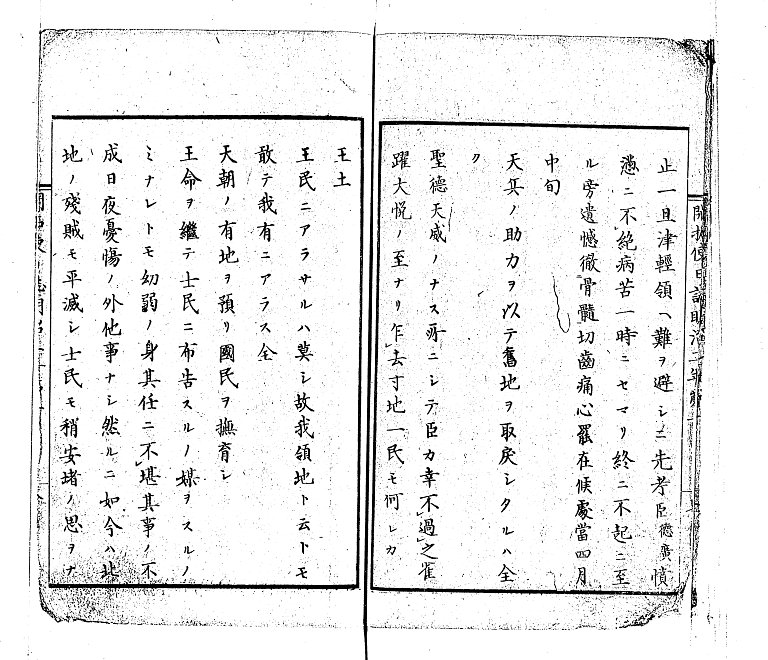 止一旦津輕領ヘ難ヲ避シニ先考臣德廣憤
懣ニ不絶病苦一時ニセマリ終ニ不起ニ至
ル旁遺憾徹骨髓切齒痛心罷在候處當四月
中旬
天兵ノ助力ヲ以テ舊地ヲ取戻シタルハ全
ク
聖德天威ノナス所ニシテ臣カ幸不過之雀
躍大悦ノ至ナリ乍去寸地一民モ何レカ
王土
王民ニアラサルハ莫シ故我領地ト云トモ
敢テ我有ニアラス全
天朝ノ有地ヲ預リ國民ヲ撫育シ
王命ヲ繼テ士民ニ布告スルノ媒ヲスルノ
ミナレトモ幼弱ノ身其任ニ不堪其事ノ不
成日夜憂傷ノ外他事ナシ然ルニ如今ハ北
地ノ殘賊モ平滅シ士民モ稍安堵ノ思ヲナ
開拓使日誌明治二年第